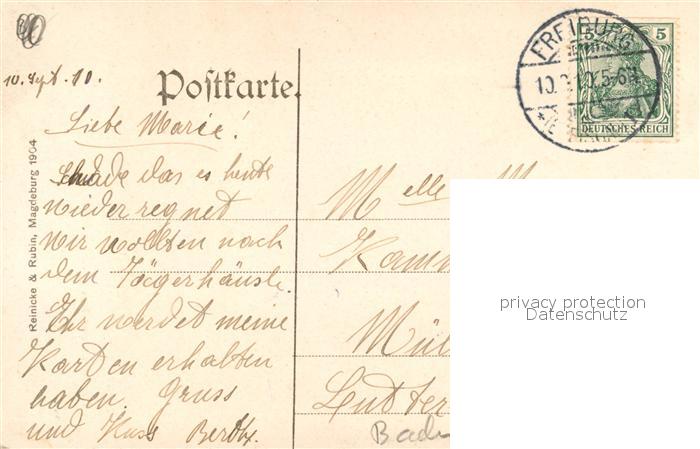 10. Sept. 10.
Postkarte.
Liebe Marie!
Schade das es heute
wieder regnet
wir wollten nach
dem Jägerhäusle.
Ihr werdet meine
Karten erhalten
haben. Gruss
und Kuss Bertha.
Reinicke & Rubin, Magdeburg 1904
FREIBURG
10.9.10.5-6N
5 5
DEUTSCHES REICH
Melle M
Kam
Mül
Lutter
Bad
privacy protection
Datenschutz